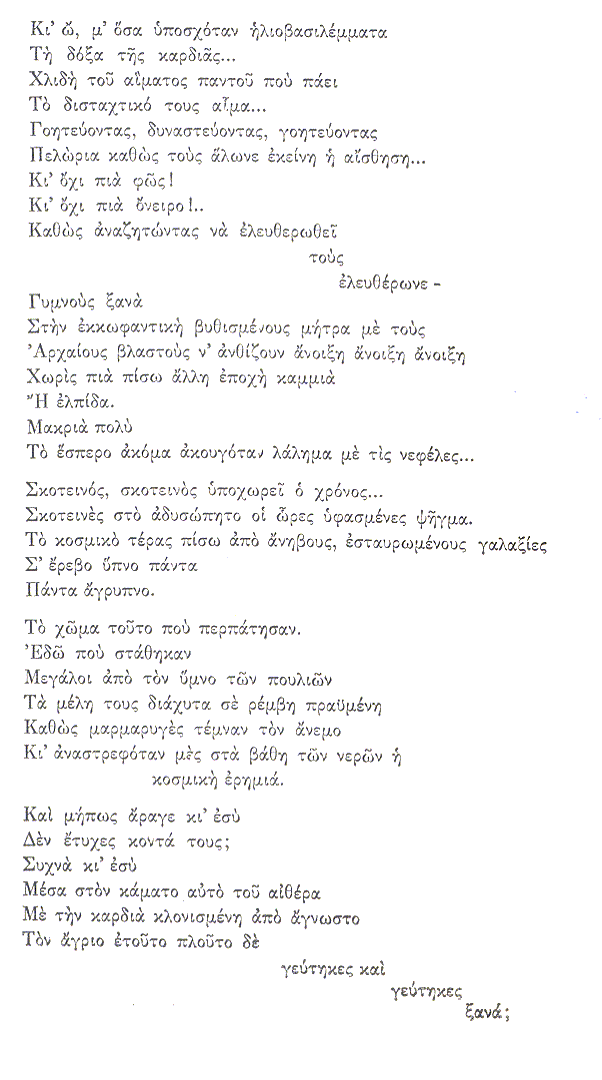 Κι’ ὤ, μ’ ὅσα ὑποσχόταν ἡλιοβασιλέμματα
Τὴ δόξα τῆς καρδιᾶς...
Χλιδὴ τοῦ αἵματος παντοῦ ποὺ πάει
Τὸ δισταχτικό τους αἷμα...
Γοητεύοντας, δυναστεύοντας, γοητεύοντας
Πελώρια καθὼς τοὺς ἅλωνε ἐκείνη ἡ αἴσθηση...
Κι’ ὄχι πιὰ φῶς!
Κι’ ὄχι πιὰ ὄνειρο!..
Καθὼς ἀναζητώντας νὰ ἐλευθερωθεῖ
τοὺς
ἐλευθέρωνε -
Γυμνοὺς ξανὰ
Στὴν ἐκκωφαντικὴ βυθισμένους μήτρα μὲ τοὺς
Ἀρχαίους βλαστοὺς ν’ ἀνθίζουν ἄνοιξη ἄνοιξη ἄνοιξη
Χωρὶς πιὰ πίσω ἄλλη ἐποχὴ καμμιὰ
Ἢ ἐλπίδα.
Μακριὰ πολὺ
Τὸ ἕσπερο ἀκόμα ἀκουγόταν λάλημα μὲ τὶς νεφέλες...
Σκοτεινός, σκοτεινὸς ὑποχωρεῖ ὁ χρόνος...
Σκοτεινὲς στὸ ἀδυσώπητο οἱ ὧρες ὑφασμένες ψῆγμα.
Τὸ κοσμικὸ τέρας πίσω ἀπὸ ἄνηβους, ἐσταυρωμένους γαλαξίες
Σ’ ἔρεβο ὕπνο πάντα
Πάντα ἄγρυπνο.
Τὸ χῶμα τοῦτο ποὺ περπάτησαν.
Ἐδῶ ποὺ στάθηκαν
Μεγάλοι ἀπὸ τὸν ὕμνο τῶν πουλιῶν
Τὰ μέλη τους διάχυτα σὲ ρέμβη πραϋμένη
Καθὼς μαρμαρυγὲς τέμναν τὸν ἄνεμο
Κι’ ἀναστρεφόταν μὲς στὰ βάθη τῶν νερῶν ἡ
κοσμικὴ ἐρημιά.
Καὶ μήπως ἄραγε κι’ ἐσὺ
Δὲν ἔτυχες κοντά τους;
Συχνὰ κι’ ἐσὺ
Μέσα στὸν κάματο αὐτὸ τοῦ αἰθέρα
Μὲ τὴν καρδιὰ κλονισμένη ἀπὸ ἄγνωστο
Τὸν ἄγριο ἐτοῦτο πλοῦτο δὲ
γεύτηκες καὶ
γεύτηκες
ξανά;